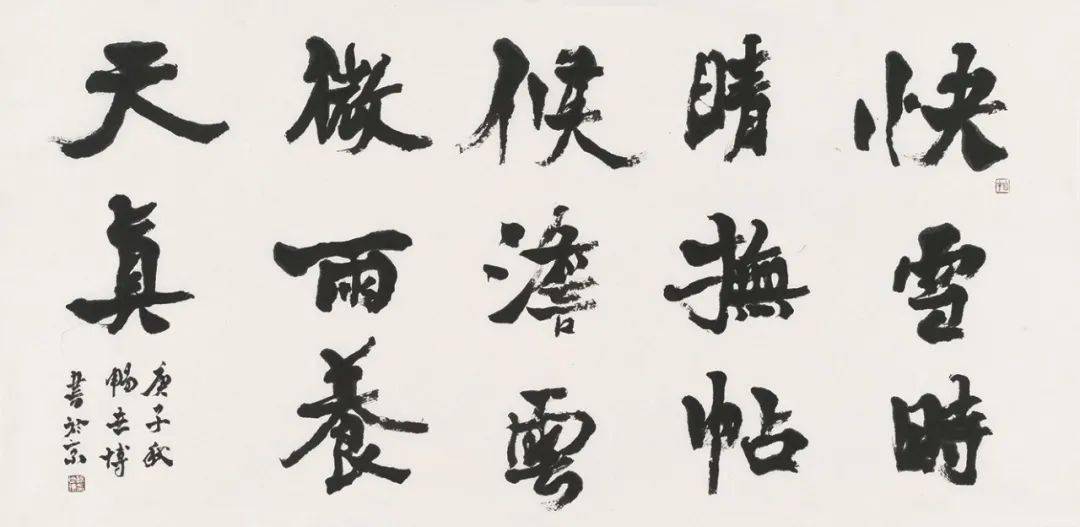 快雪時
晴撫帖
候澹雲
微雨養
天真
庚子秋
暢博
書於京